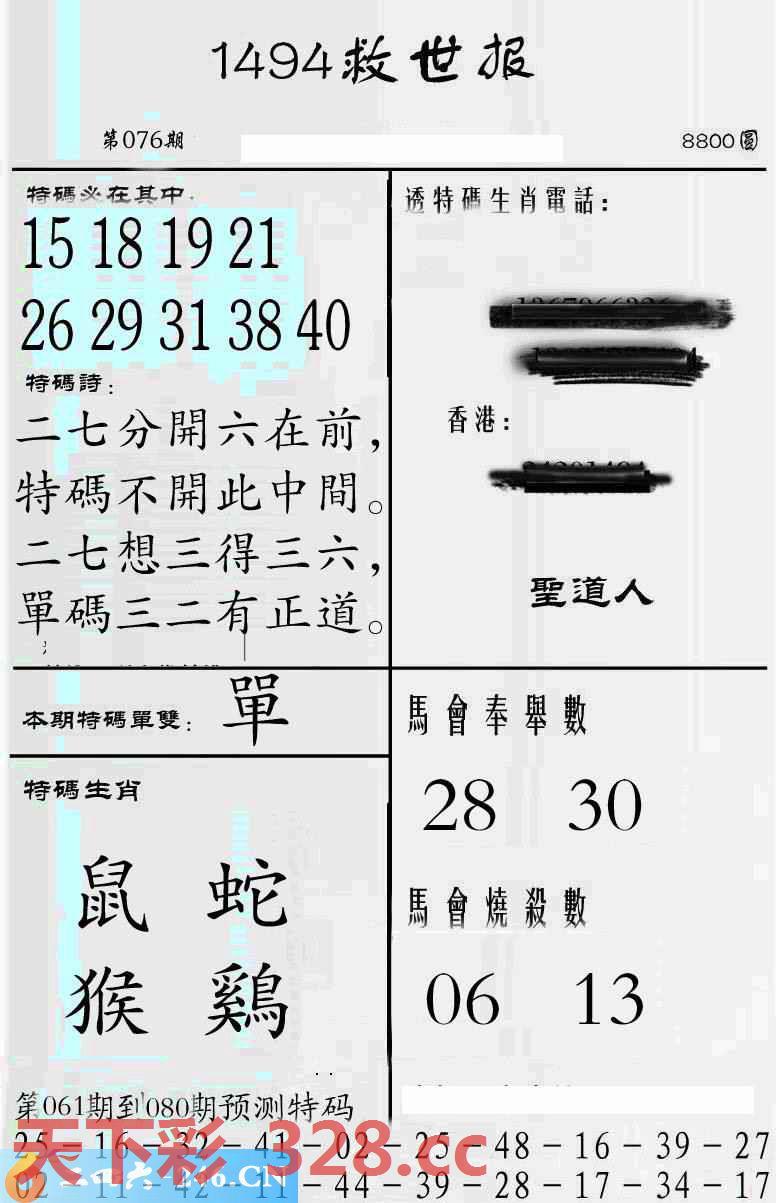 1494救世报
第076期
8800圓
特碼必在其中:
15 18 19 21
26 29 31 38 40
特碼詩:
二七分開六在前,
特碼不開此中間。
二七想三得三六,
單碼三二有正道。
透特碼生肖電話:
香港:
聖道人
本期特碼單雙: 單
特碼生肖
鼠 蛇
猴 鷄
馬會奉舉數
28 30
馬會燒殺數
06 13
第061期到080期预测特码
25-16-32-41-02-25-48-16-39-27
02-11-42-11-44-39-28-17-34-17
天下彩 328.cc
二四六 246.CN